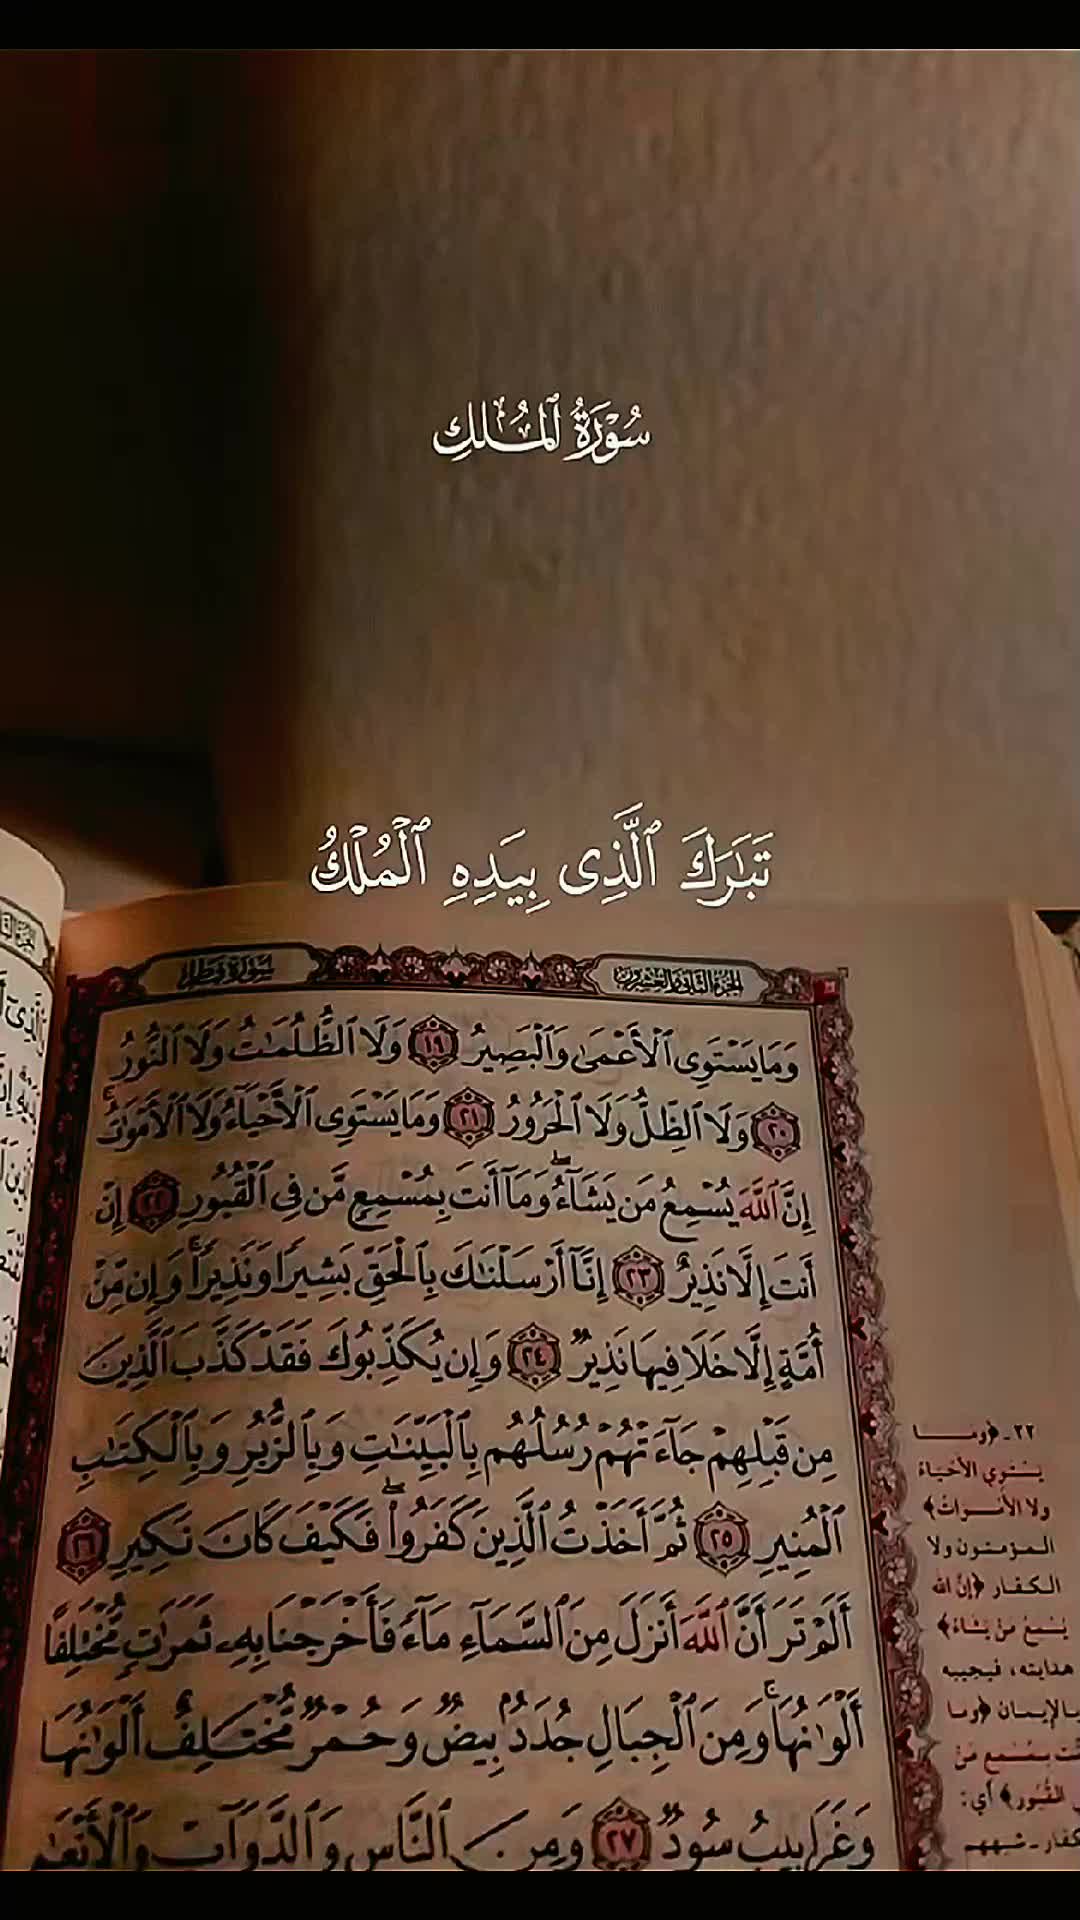 سُورَةُ ٱلْمُلْكِ
تَبَٰرَكَ ٱلَّذِى بِيَدِهِ ٱلْمُلْكُ
الجزء الثاني والعشرون
سورة فاطر
وَمَا يَسْتَوِى ٱلْأَعْمَىٰ وَٱلْبَصِيرُ ١٩ وَلَا ٱلظُّلُمَٰتُ وَلَا ٱلنُّورُ
٢٠ وَلَا ٱلظِّلُّ وَلَا ٱلْحَرُورُ ٢١ وَمَا يَسْتَوِى ٱلْأَحْيَآءُ وَلَا ٱلْأَمْوَٰتُۚ
إِنَّ ٱللَّهَ يُسْمِعُ مَن يَشَآءُۖ وَمَآ أَنتَ بِمُسْمِعٍ مَّن فِى ٱلْقُبُورِ ٢٢ إِنْ
أَنتَ إِلَّا نَذِيرٌ ٢٣ إِنَّآ أَرْسَلْنَٰكَ بِٱلْحَقِّ بَشِيرًا وَنَذِيرًاۚ وَإِن مِّنْ
أُمَّةٍ إِلَّا خَلَا فِيهَا نَذِيرٌ ٢٤ وَإِن يُكَذِّبُوكَ فَقَدْ كَذَّبَ ٱلَّذِينَ
مِن قَبْلِهِمْ جَآءَتْهُمْ رُسُلُهُم بِٱلْبَيِّنَٰتِ وَبِٱلزُّبُرِ وَبِٱلْكِتَٰبِ
ٱلْمُنِيرِ ٢٥ ثُمَّ أَخَذْتُ ٱلَّذِينَ كَفَرُوا۟ۖ فَكَيْفَ كَانَ نَكِيرِ ٢٦
أَلَمْ تَرَ أَنَّ ٱللَّهَ أَنزَلَ مِنَ ٱلسَّمَآءِ مَآءً فَأَخْرَجْنَا بِهِۦ ثَمَرَٰتٍ مُّخْتَلِفًا
أَلْوَٰنُهَاۚ وَمِنَ ٱلْجِبَالِ جُدَدٌۢ بِيضٌ وَحُمْرٌ مُّخْتَلِفٌ أَلْوَٰنُهَا
وَغَرَابِيبُ سُودٌ ٢٧ وَمِنَ ٱلنَّاسِ وَٱلدَّوَآبِّ وَٱلْأَنْعَٰمِ
٢٢ـ ﴿وما
يستوي الأحياء
ولا الأموات﴾
المؤمنون ولا
الكفار ﴿إن الله
يسمع من يشاء﴾
هدايته، فيجيبه
بالإيمان ﴿وما
بمسمع من
القبور﴾ أي:
شبههم